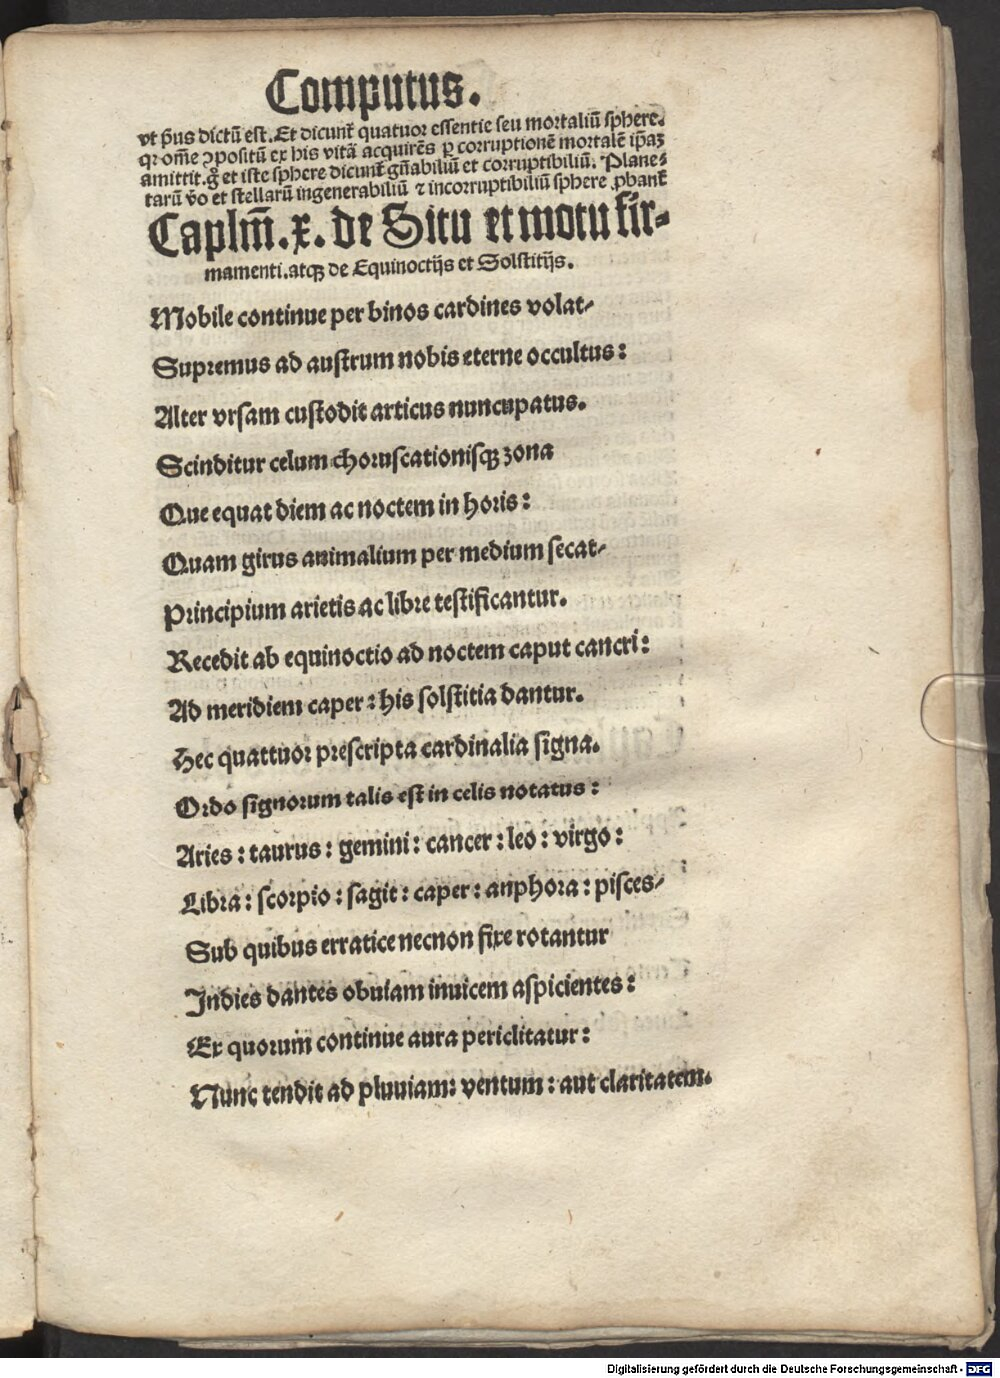 Computus.
vt p̄us dictū est. Et dicunt̄ quatuor essentie seu mortaliū sphere.
qꝛ om̄e ↄpositū ex his vitā acquirēs ꝑ corruptionē mortalē ip̄aꝫ
amittit. g̊ et iste sphere dicunt̄ gn̄abiliū et corruptibiliū. Plane⸗
tarū v̊o et stellarū ingenerabiliū ⁊ incorruptibiliū sphere ꝓbant̄
Caplm̄. x. de Situ et motu fir⸗
mamenti. atqꝫ de Equinoctijs et Solstitijs.
Mobile continue per binos cardines volat⸗
Supremus ad austrum nobis eterne occultus:
Alter vrsam custodit articus nuncupatus.
Scinditur celum choruscationisqꝫ zona
Que equat diem ac noctem in horis:
Quam girus animalium per medium secat⸗
Principium arietis ac libre testificantur.
Recedit ab equinoctio ad noctem caput cancri:
Ad meridiem caper: his solstitia dantur.
Hec quattuor prescripta cardinalia signa.
Ordo signorum talis est in celis notatus:
Aries: taurus: gemini: cancer: leo: virgo:
Libra: scorpio: sagit: caper: anphora: pisces⸗
Sub quibus erratice necnon fixe rotantur
Indies dantes obuiam inuicem aspicientes:
Ex quorum continue aura periclitatur:
Nunc tendit ad pluuiam: ventum: aut claritatem.
Digitalisierung gefördert durch die Deutsche Forschungsgemeinschaft - DFG